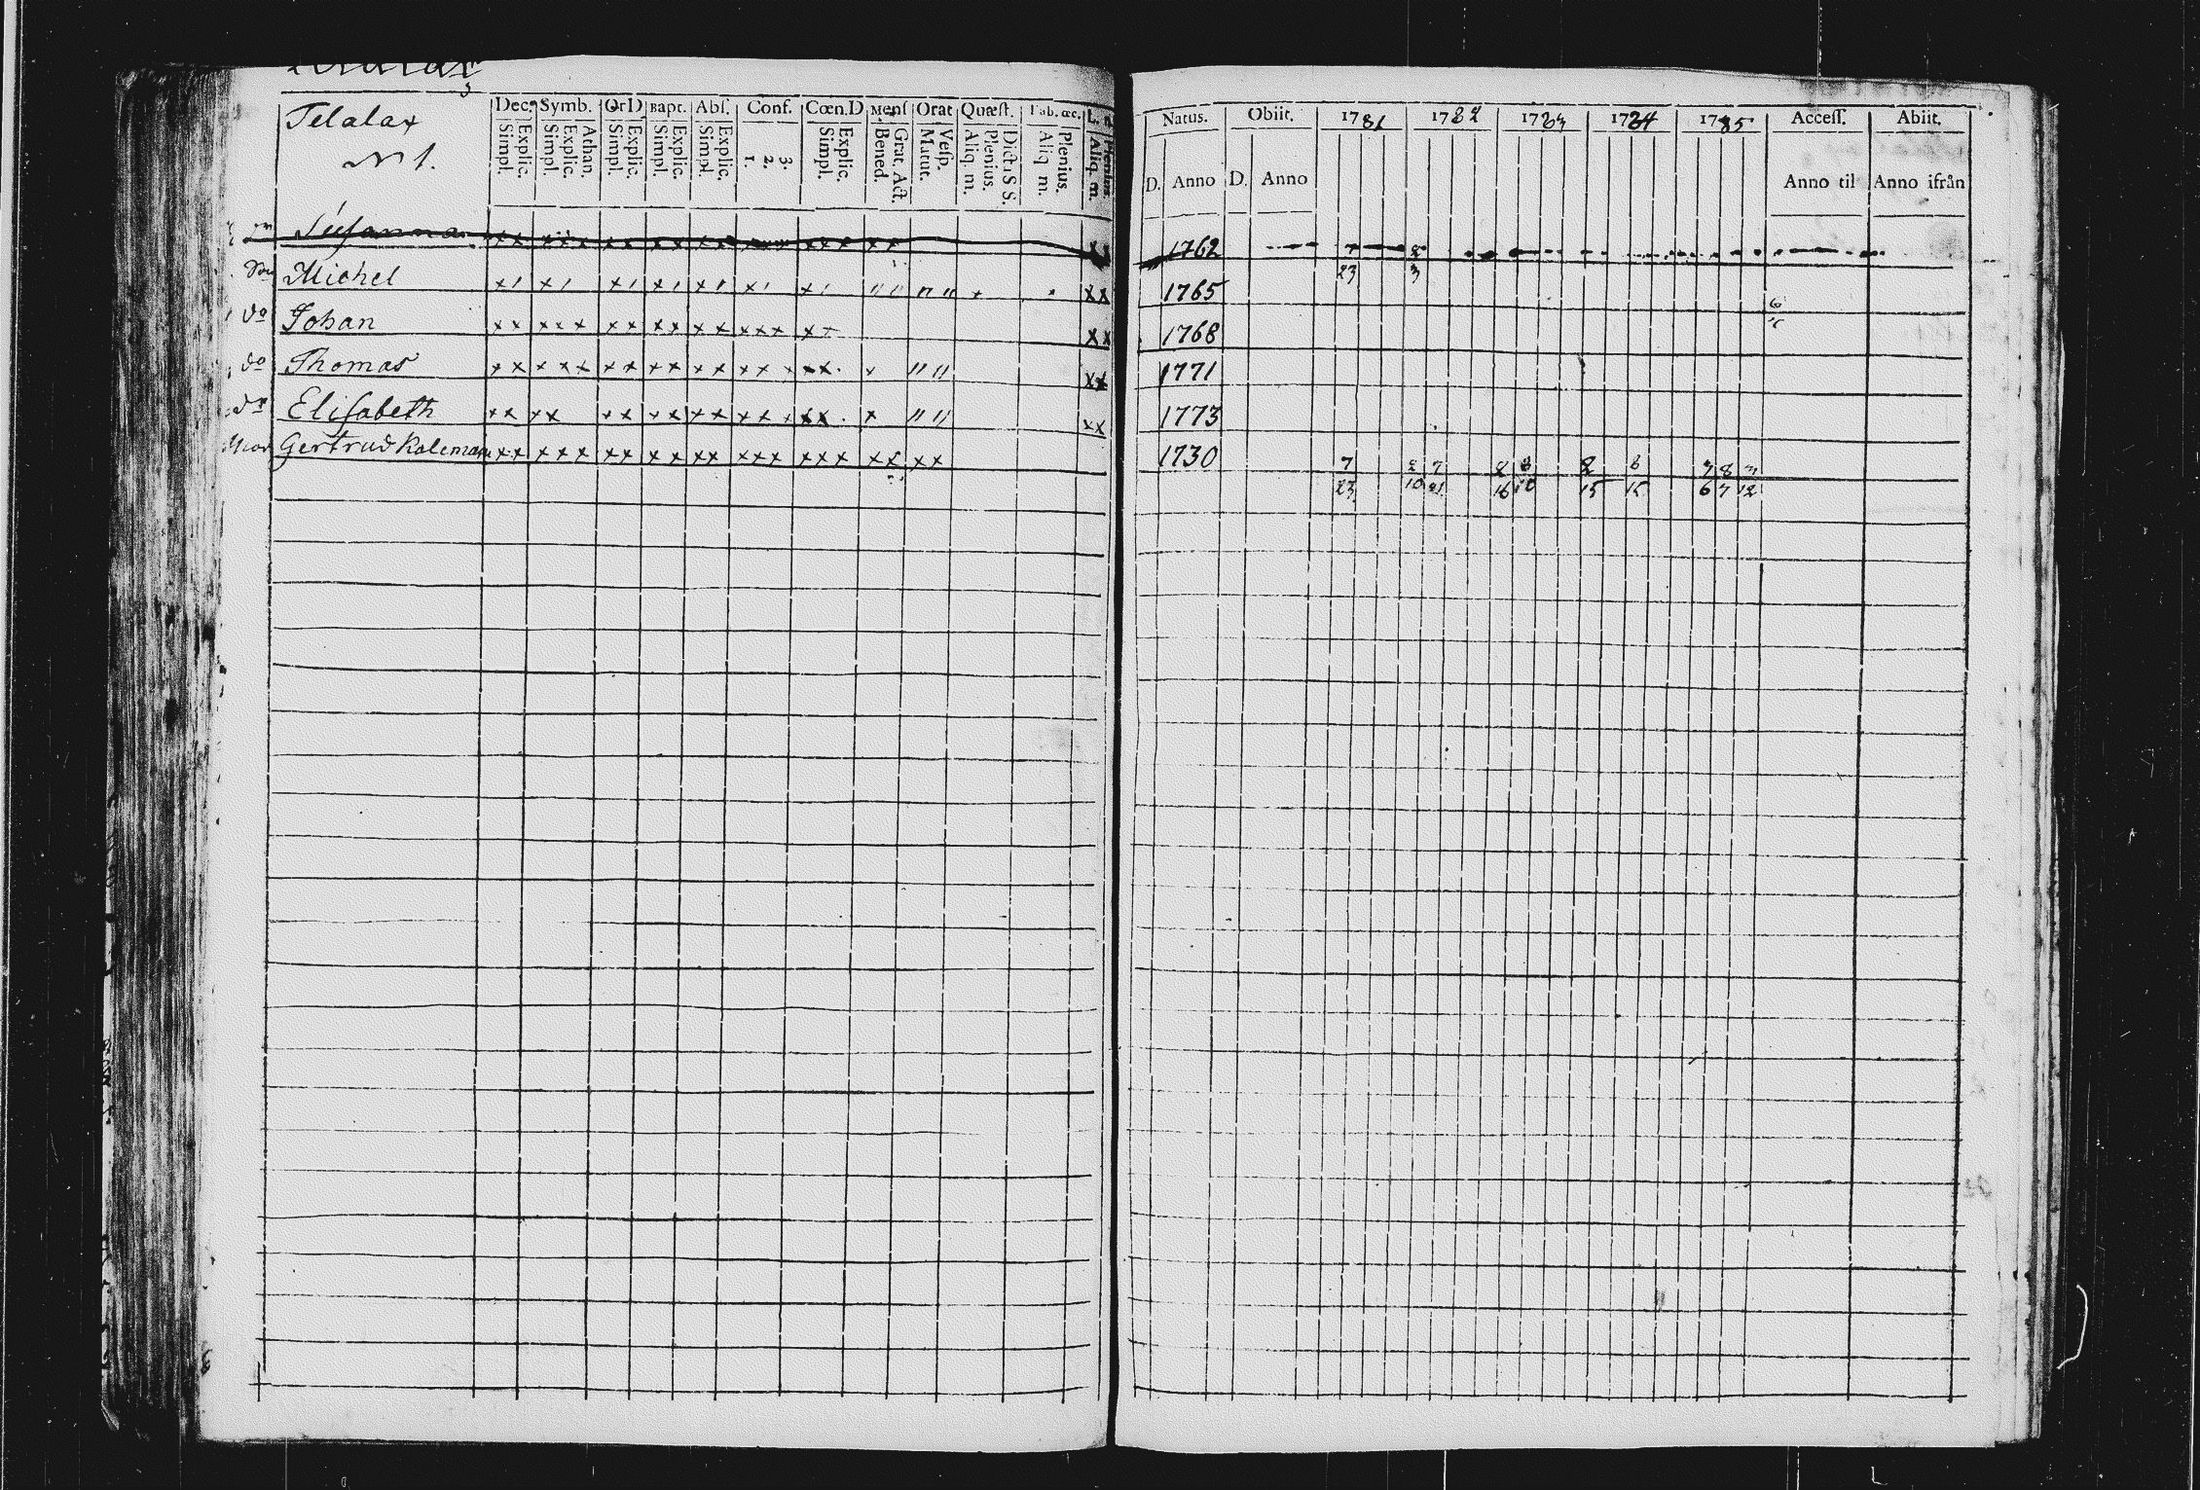 Telalax
N 1.
Dec. Symb. Or D. Bapt. Abſ. Conf. Cœn. D Menſ Orat Quæſt. Tab. œc. L. n.
Simpl. Explic. Simpl. Explic. Athan. Simpl. Explic. Simpl. Explic. Simpl. Explic. 1. 2. 3. Simpl. Explic. Bened. Grat. Act. Matut. Veſp. Aliq. m. Plenius. Dicta S S. Aliq. m. Plenius. Aliq. m. Plenius.
Natus. Obiit. 1781 1782 1783 1784 1785 Acceſſ. Abiit.
D. Anno D. Anno Anno til Anno ifrån
Suſanna xx xxx xx xx xx xxx xxx xx xx 1762
Son Michel x/ x/ x/ x/ x/ x/ x/ // // // x xx 1765 23 3
do Johan xx xxx xx xx xx xxx xx xx 1768
do Thomas xx xxx xx xx xx xxx xx x // // xx 1771
dr Eliſabeth xx xx xx xx xx xxx xx x // // xx 1773
Gertrud Kaleman xx xxx xx xx xx xxx xxx xx xx 1730 7 2 7 8 8 2 8 7 8 7
23 10 21 16 10 15 15 6 7 12